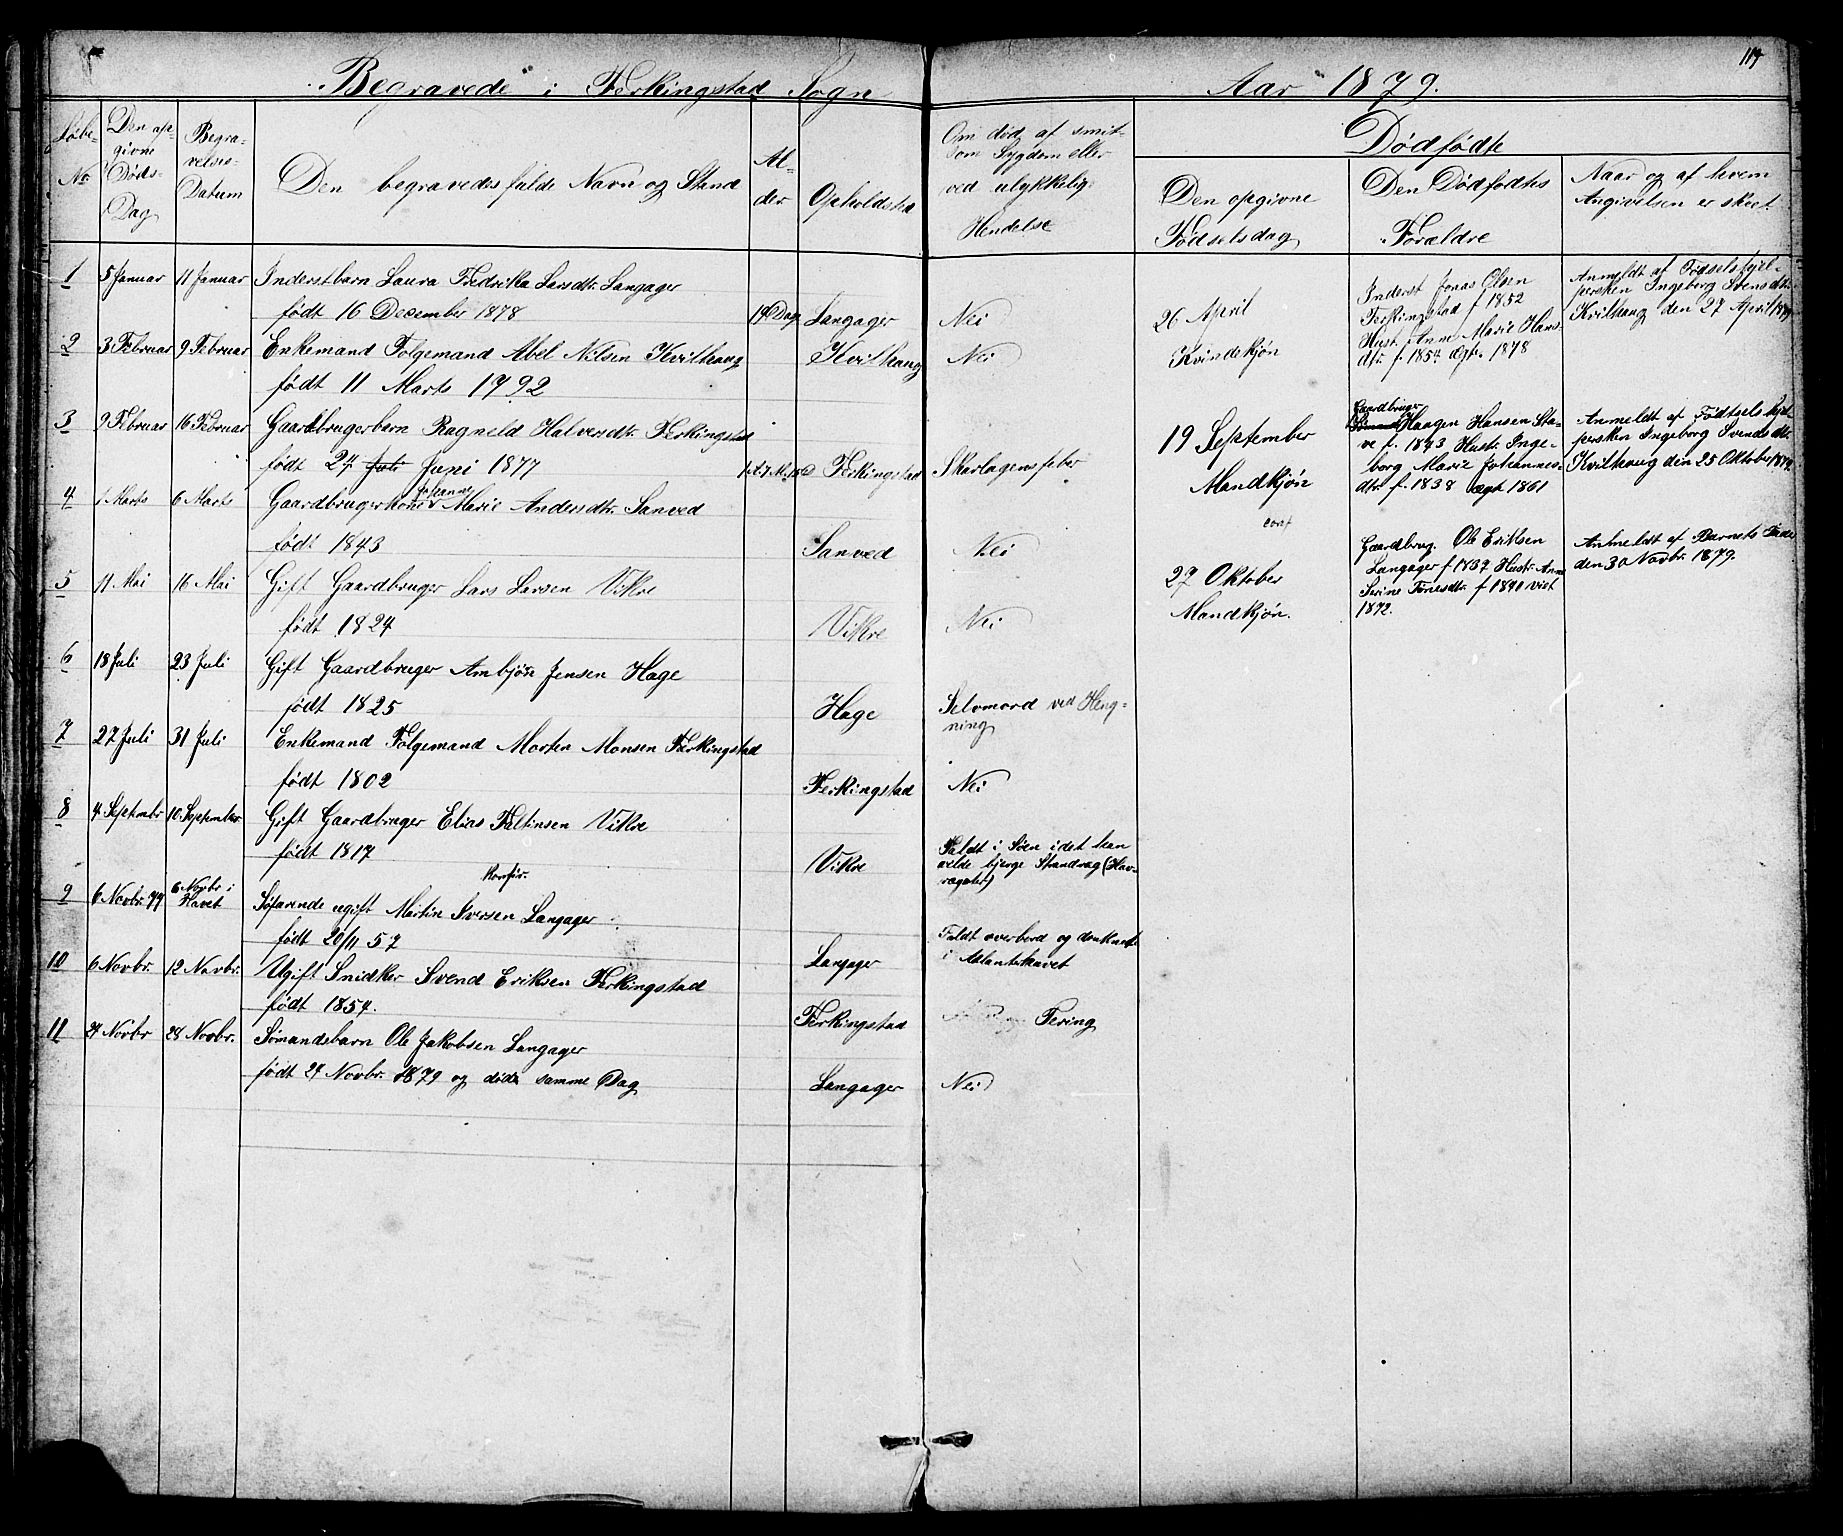 117
Begravede i Ferkingstad Sogn Aar 1879.
Løbe-
No.
Den op-
givne
Døds-
Dag
Begra-
velses-
Datum
Den begravedes fulde Navn og Stand
Al-
der
Opholdsted
Om død af smit-
som Sygdom eller
ved ulykkelig
Hendelse
Dødfødte
Den opgivne
Fødselsdag
Den Dødfødtes
Forældre
Naar og af hvem
Angivelsen er skeet
1 5 Januar 11 Januar Inderstbarn Laura Fredrika Larsdtr. Langager
født 16 December 1878 19 Dage Langager Nei
2 3 Februar 9 Februar Enkemand Folgemand Abel Nilsen Kvilhaug Kvilhaug Nei
født 11 Marts 1792
3 9 Februar 16 Februar Gaardbrugerbarn Ragneld Halversdtr. Ferkingstad
født 27 Juli Juni 1877 Ferkingstad Skarlagensfeber
4 1 Marts 6 Marts Gaardbrugerkone Johanne Marie Andersdtr. Sanved
født 1843 Sanved Nei
5 11 Mai 16 Mai Gift Gaardbruger Lars Larsen Vikre
født 1824 Vikre Nei
6 18 Juli 23 Juli Gift Gaardbruger Ambjørn Jensen Hage
født 1825 Hage Selvmord ved Heng-
ning
7 27 Juli 31 Juli Enkemand Folgemand Morten Monsen Ferkingstad
født 1802 Ferkingstad Nei
8 4 Septembr 10 September Gift Gaardbruger Elias Faltinsen Vikre
født 1817 Vikre Faldt i Søen idet han
vilde bjerge Strandvag (Hav-
vægster)
konfir.
9 6 Novbr. 77 6 Novbr i
Havet
Søfarende ugift Martin Iversen Langager
født 20/11 57 Langager Faldt overbord og druknet
i Atlanterhavet
10 6 Novbr. 12 Novbr. Ugift Snidker Svend Eriksen Ferkingstad
født 1854. Ferkingstad Tering
11 24 Novbr 28 Novbr. Sømandsbarn Ole Jakobsen Langager
født 24 Novbr. 1879 og døde samme Dag Langager Nei
26 April
Kvindekjøn
Inderst Jonas Olsen
Ferkingstad f 1852
Hust. Anne Marie Hans-
dtr. f. 1854 ægt. 1878
Anmeldt af Fødselshjel-
persken Ingeborg Svensdtr.
Kvilhaug den 27 April 1879
19 September
Mandkjøn
Gaardbruger
Haagen Hansen Sta-
ve f. 1843 Hustr. Inge-
borg Marie Johannes-
dtr. f. 1838 ægt 1861
Anmeldt af Fødtselshjel-
persken Ingeborg Svendsdtr.
Kvilhaug den 25 Oktober 1879
27 Oktober
Mandkjøn.
Gaardbrug. Ole Eriksen
Langager f 1837 Hustr. Anne
Serine Tønesdtr. f 1840 viet
1872.
Anmeldt af Barnets Fader
den 30 Novbr. 1879.